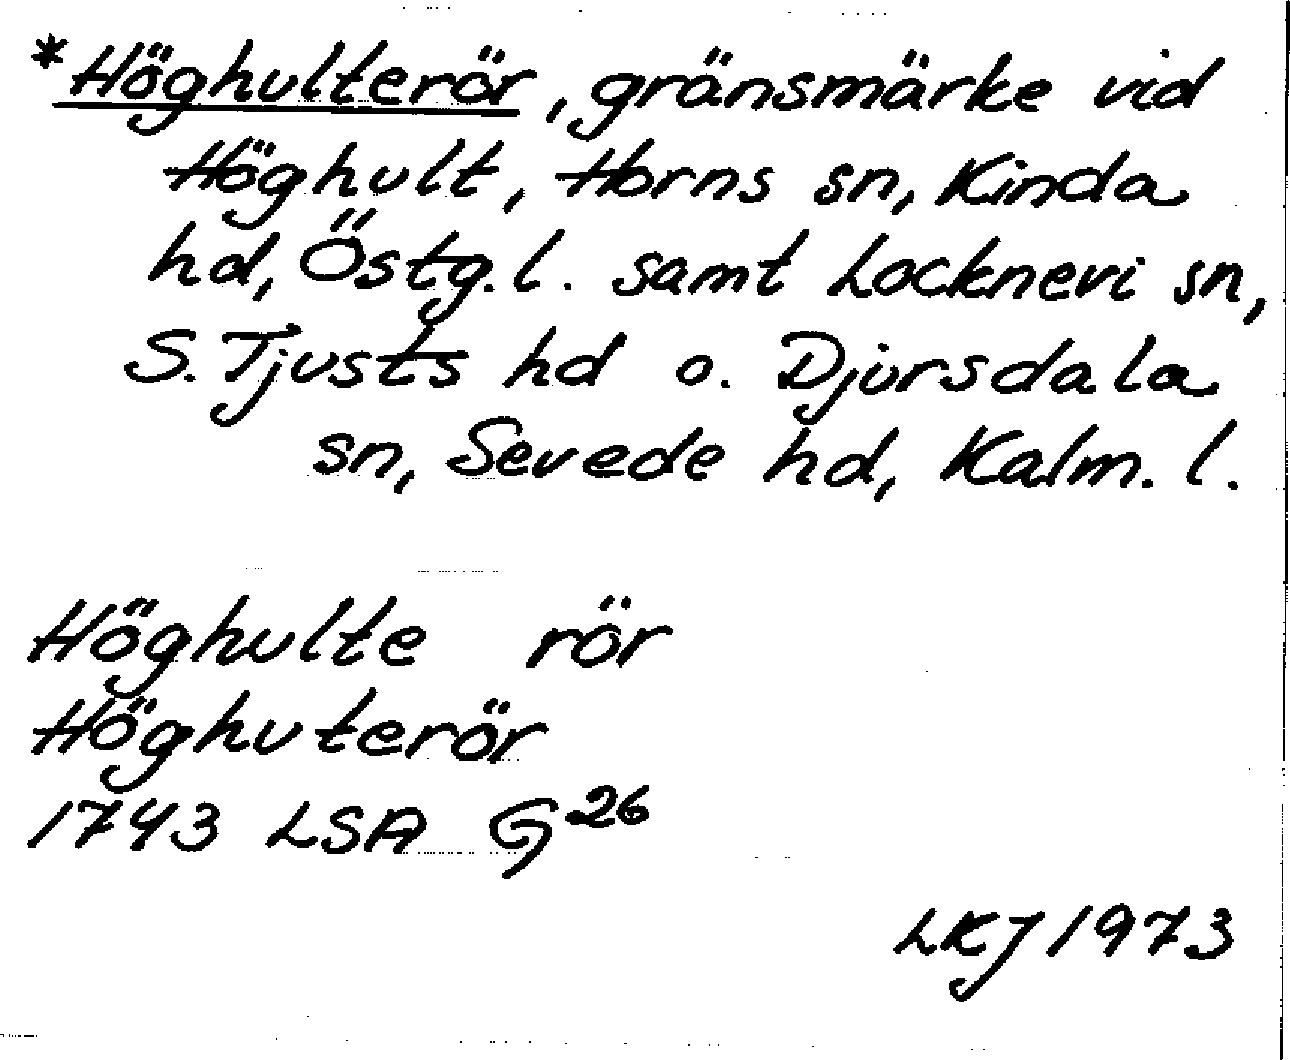 *Höghulterör, gränsmärke vid
Höghult, Horns sn, Kinda
hd, Östg.l. samt Locknevi sn,
S. Tjusts hd o. Djursdala
sn, Sevede hd, Kalm. l.
Höghulte rör
Höghuterör
1743 LSA G26
LKJ 1973